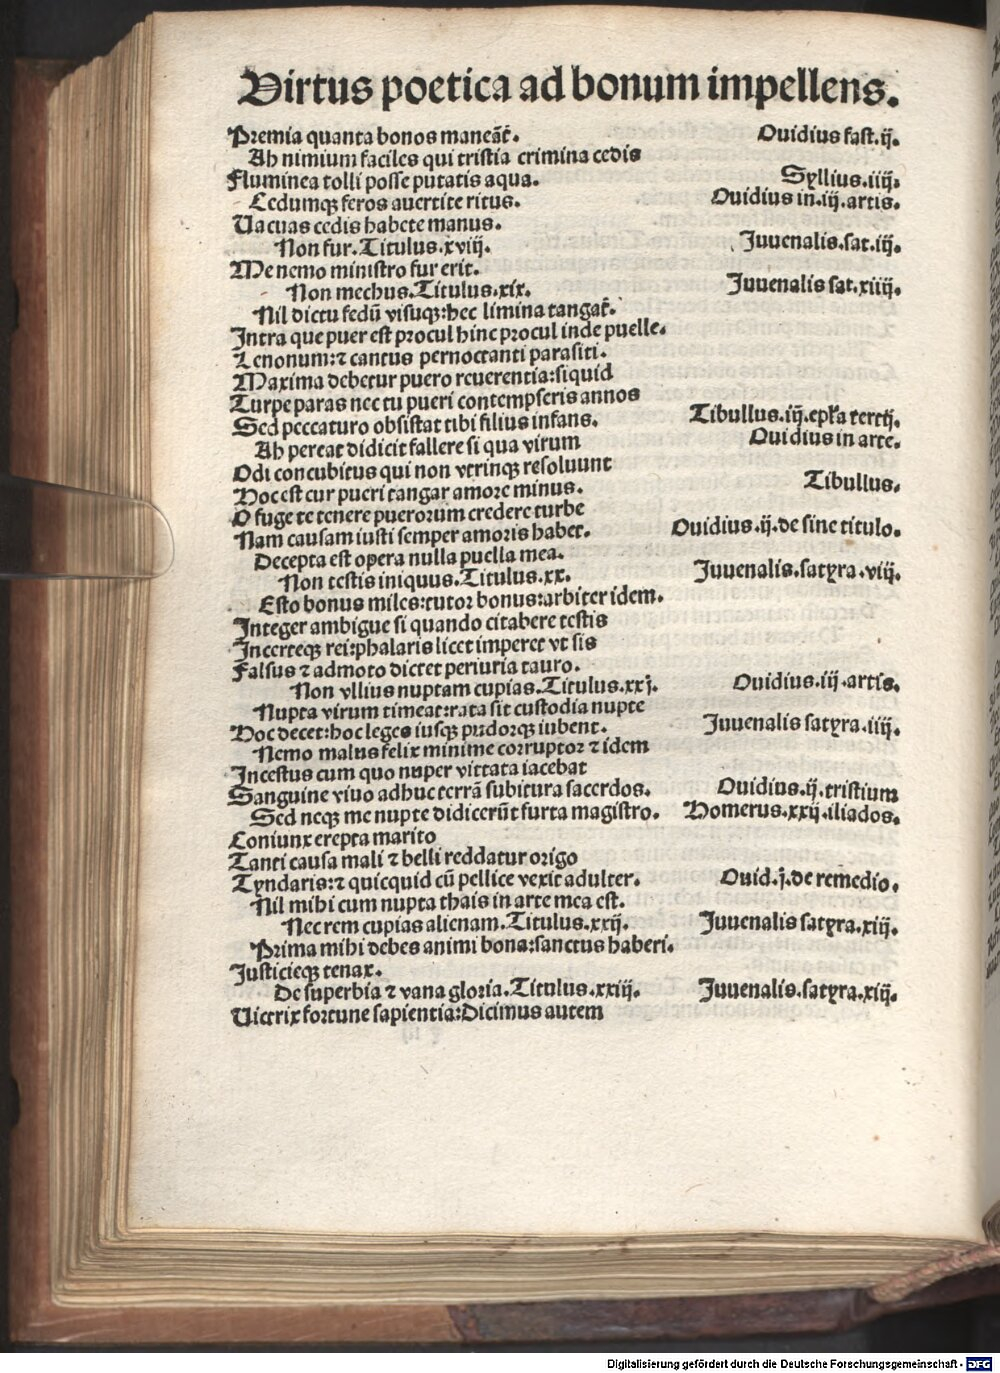 Virtus poetica ad bonum impellens.
Premia quanta bonos maneāt̄. Ouidius fast.ij.
Ah nimium faciles qui tristia crimina cedis
Fluminea tolli posse putatis aqua. Syllius.iiij.
Cedumqꝫ feros auertite ritus. Ouidius in.iij.artis.
Uacuas cedis habete manus.
Non fur.Titulus.xviij. Juuenalis.sat.iij.
Me nemo ministro fur erit.
Non mechus.Titulus.xix. Juuenalis sat.xiiij.
Nil dictu fedū visuqꝫ:hec limina tangat̄.
Intra que puer est procul hinc procul inde puelle.
Lenonum:⁊ cantus pernoctanti parasiti.
Maxima debetur puero reuerentia:siquid
Turpe paras nec tu pueri contempseris annos
Sed peccaturo obsistat tibi filius infans. Tibullus.iij.epl̄a tertij.
Ah pereat didicit fallere si qua virum Ouidius in arte.
Odi concubitus qui non vtrinqꝫ resoluunt
Hoc est cur pueri tangar amore minus. Tibullus.
O fuge te tenere puerorum credere turbe
Nam causam iusti semper amoris habet. Ouidius.ij.de sine titulo.
Decepta est opera nulla puella mea.
Non testis iniquus.Titulus.xx. Juuenalis.satyra.viij.
Esto bonus miles:tutor bonus:arbiter idem.
Integer ambigue si quando citabere testis
Incerteqꝫ rei:phalaris licet imperet vt sis
Falsus ⁊ admoto dictet periuria tauro.
Non vllius nuptam cupias.Titulus.xxj. Ouidius.iij.artis.
Nupta virum timeat:rata sit custodia nupte
Hoc decet:hoc leges iusqꝫ pudorqꝫ iubent. Juuenalis satyra.iiij.
Nemo malus felix minime corruptor ⁊ idem
Incestus cum quo nuper vittata iacebat
Sanguine viuo adhuc terrā subitura sacerdos. Ouidius.ij.tristium
Sed neqꝫ me nupte didicerūt furta magistro. Homerus.xxij.iliados.
Coniunx erepta marito
Tanti causa mali ⁊ belli reddatur origo
Tyndaris:⁊ quicquid cū pellice vexit adulter. Ouid.j.de remedio.
Nil mihi cum nupta thais in arte mea est.
Nec rem cupias alienam.Titulus.xxij. Juuenalis satyra.xiij.
Prima mihi debes animi bona:sanctus haberi.
Justicieqꝫ tenax.
De superbia ⁊ vana gloria.Titulus.xxiij. Juuenalis.satyra.xiij.
Uictrix fortune sapientia:Dicimus autem
Digitalisierung gefördert durch die Deutsche Forschungsgemeinschaft - DFG